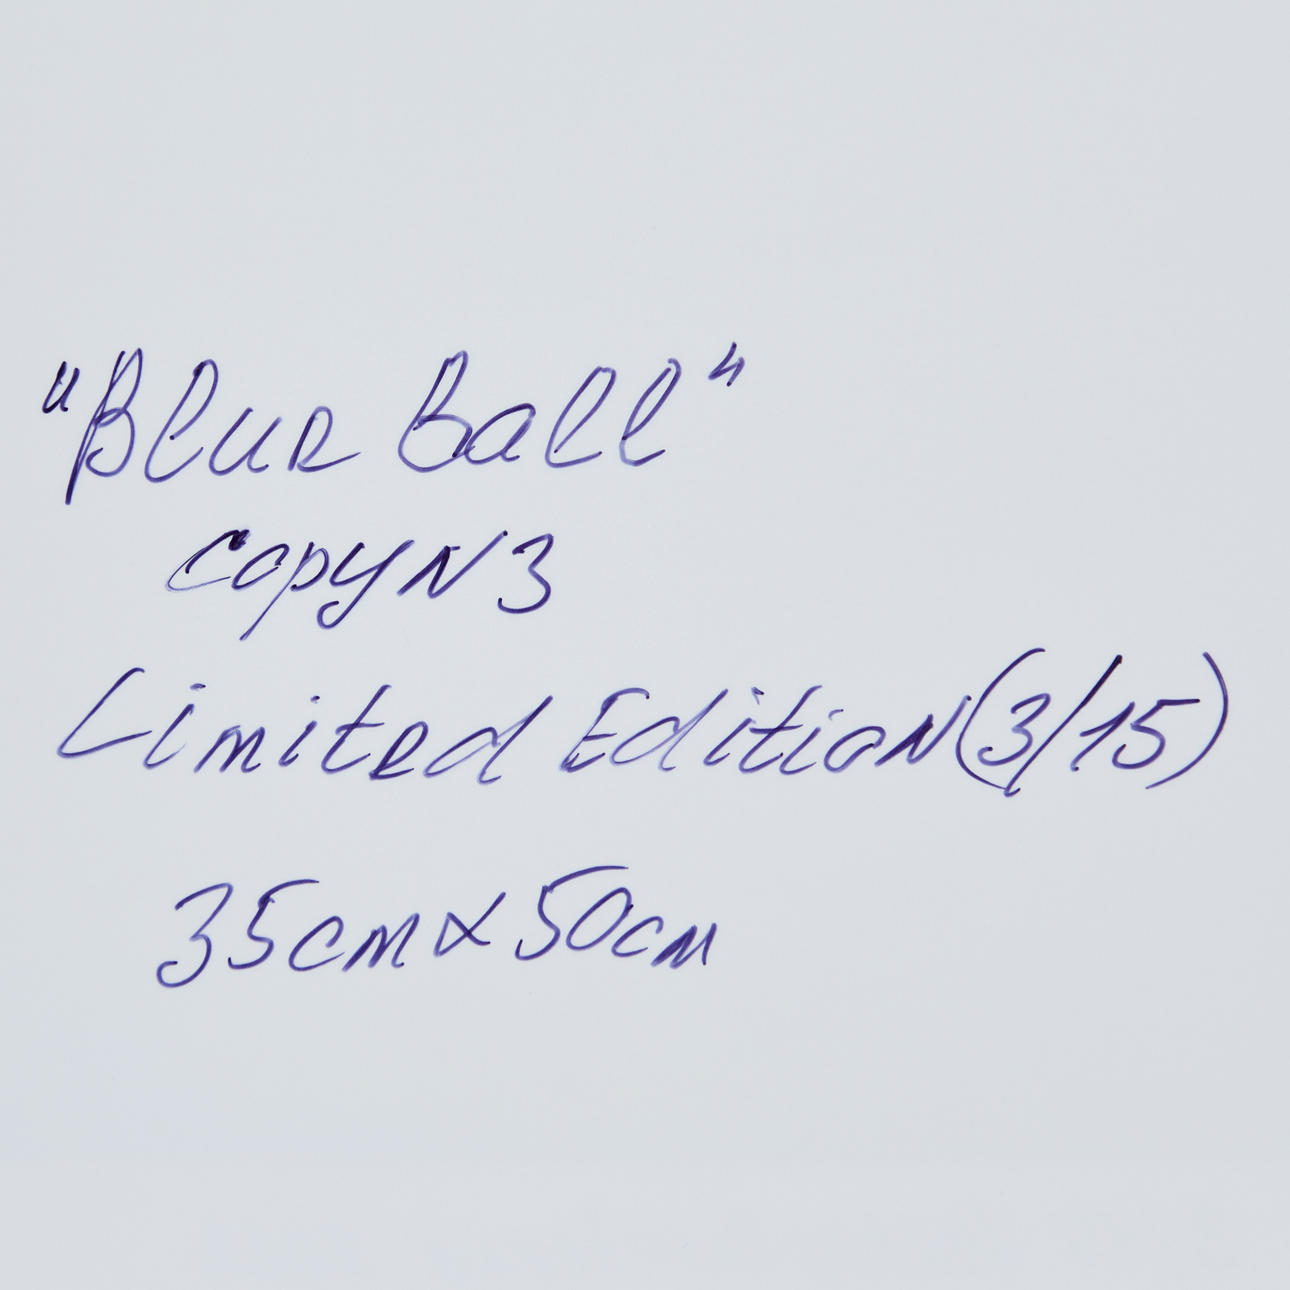 "Blue Ball"
copy N 3
Limited Edition (3/15)
35cm x 50cm